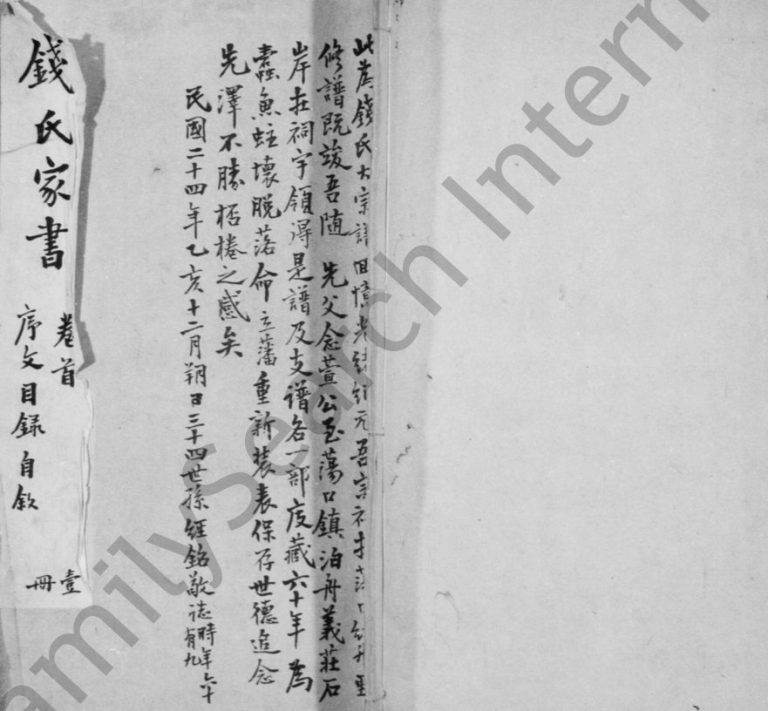 此為錢氏大宗譜回憶光緒紀元吾宗
修譜既竣吾隨 先父念萱公至蕩口鎮泊舟義莊石
岸在祠宇領得是譜及支譜各一部庋藏六十年為
蠹魚蛀壞脫落命立藩重新裝表保存世德追念
先澤不勝桮棬之感矣
民國二十四年乙亥十二月朔日三十四世孫經銘敬誌時年六十有九
錢氏家書
卷首
序文目錄自敘
壹冊
FamilySearch International